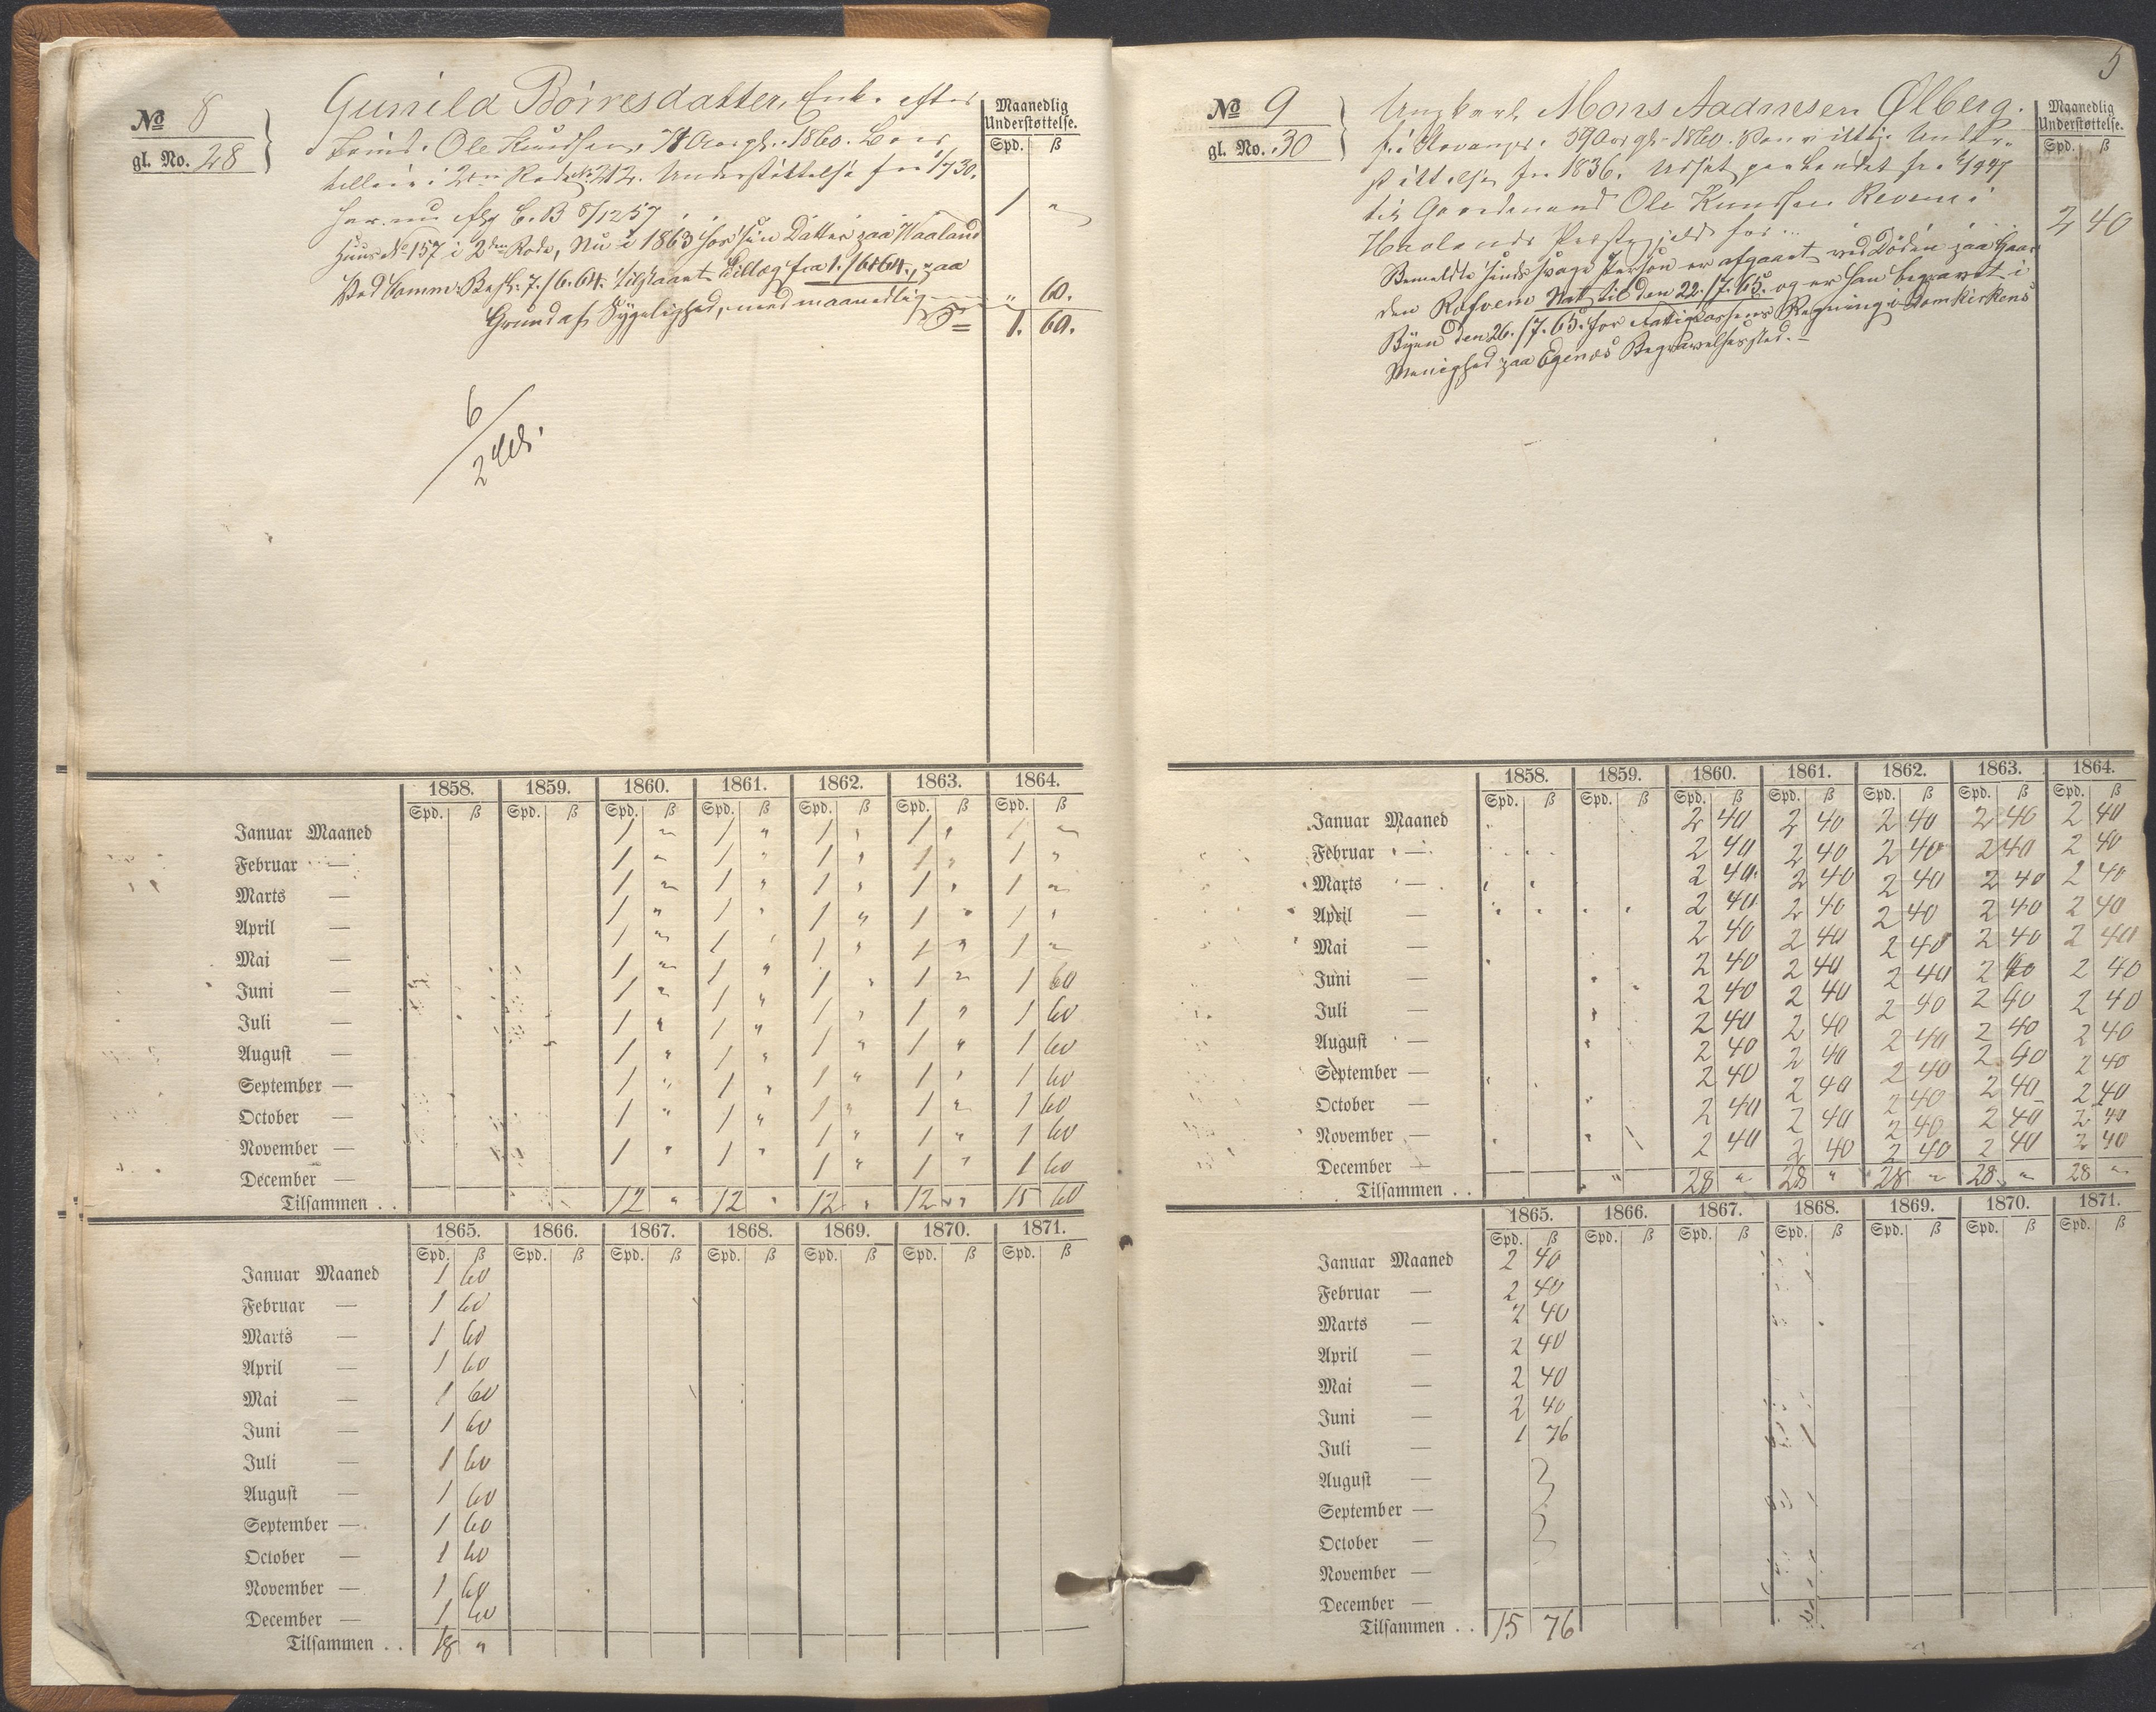 No 8
gl. No. 28
Gunild Börresdatter, Enk. efter
Ole Knudsen, Aar gl. 1860.
i 2den Rode No 212. Understøttelse fra 1/7 30.
har nu C. B 8/12 57
Huus No 157 i 2den Rode, Nu i 1863 hos sin Datter paa Waaland
Ved Comm. Besl. 7./6.64. tilstaaet Tillæg fra 1./6 64., paa
Grund af Sygelighed, med maanedlig
Maanedlig
Understøttelse.
Spd. ß
1 "
" 60.
1. 60.
6
2
1858. 1859. 1860. 1861. 1862. 1863. 1864.
Spd. ß Spd. ß Spd. ß Spd. ß Spd. ß Spd. ß Spd. ß
Januar Maaned 1 " 1 " 1 " 1 " 1 "
Februar — 1 " 1 " 1 " 1 " 1 "
Marts — 1 " 1 " 1 " 1 " 1 "
April — 1 " 1 " 1 " 1 " 1 "
Mai — 1 " 1 " 1 " 1 " 1 "
Juni — 1 " 1 " 1 " 1 " 1 60
Juli — 1 " 1 " 1 " 1 " 1 60
August — 1 " 1 " 1 " 1 " 1 60
September — 1 " 1 " 1 " 1 " 1 60
October — 1 " 1 " 1 " 1 " 1 60
November — 1 " 1 " 1 " 1 " 1 60
December — 1 " 1 " 1 " 1 " 1 60
Tilsammen . . 12 " 12 " 12 " 12 " 15 60
1865. 1866. 1867. 1868. 1869. 1870. 1871.
Spd. ß Spd. ß Spd. ß Spd. ß Spd. ß Spd. ß Spd. ß
Januar Maaned 1 60
Februar — 1 60
Marts — 1 60
April — 1 60
Mai — 1 60
Juni — 1 60
Juli — 1 60
August — 1 60
September — 1 60
October — 1 60
November — 1 60
December — 1 60
Tilsammen . . 18 "
5
No 9
gl. No. 30
Ungkarl Mons Aadnesen Ølberg.
f. i Stavanger. 59 Aar gl. 1860. Vanvittig. Under-
støttelse fra 1836. Udsat
til Gaardmand Ole Knudsen Revem i
Haalands Præstegjeld for ...
Bemeldte sindssvage Person er afgaaet ved Døden paa Gaar-
den Rofvem Nat til den 22./7.65. og er han begravet i
Byen den 26./7.65. for Fattigkassens Regning i Domkirkens
Menighed paa Egenæs Begravelsessted. —
Maanedlig
Understøttelse.
Spd. ß
2 40
1858. 1859. 1860. 1861. 1862. 1863. 1864.
Spd. ß Spd. ß Spd. ß Spd. ß Spd. ß Spd. ß Spd. ß
Januar Maaned 2 40 2 40 2 40 2 40 2 40
Februar — 2 40 2 40 2 40 2 40 2 40
Marts — 2 40 2 40 2 40 2 40 2 40
April — 2 40 2 40 2 40 2 40 2 40
Mai — 2 40 2 40 2 40 2 40 2 40
Juni — 2 40 2 40 2 40 2 40 2 40
Juli — 2 40 2 40 2 40 2 40 2 40
August — 2 40 2 40 2 40 2 40 2 40
September — 2 40 2 40 2 40 2 40 2 40
October — 2 40 2 40 2 40 2 40 2 40
November — 2 40 2 40 2 40 2 40 2 40
December — 2 40 2 40 2 40 2 40 2 40
Tilsammen . . 28 " 28 " 28 " 28 " 28 "
1865. 1866. 1867. 1868. 1869. 1870. 1871.
Spd. ß Spd. ß Spd. ß Spd. ß Spd. ß Spd. ß Spd. ß
Januar Maaned 2 40
Februar — 2 40
Marts — 2 40
April — 2 40
Mai — 2 40
Juni — 2 40
Juli — 1 76
August —
September —
October —
November —
December —
Tilsammen . . 15 76